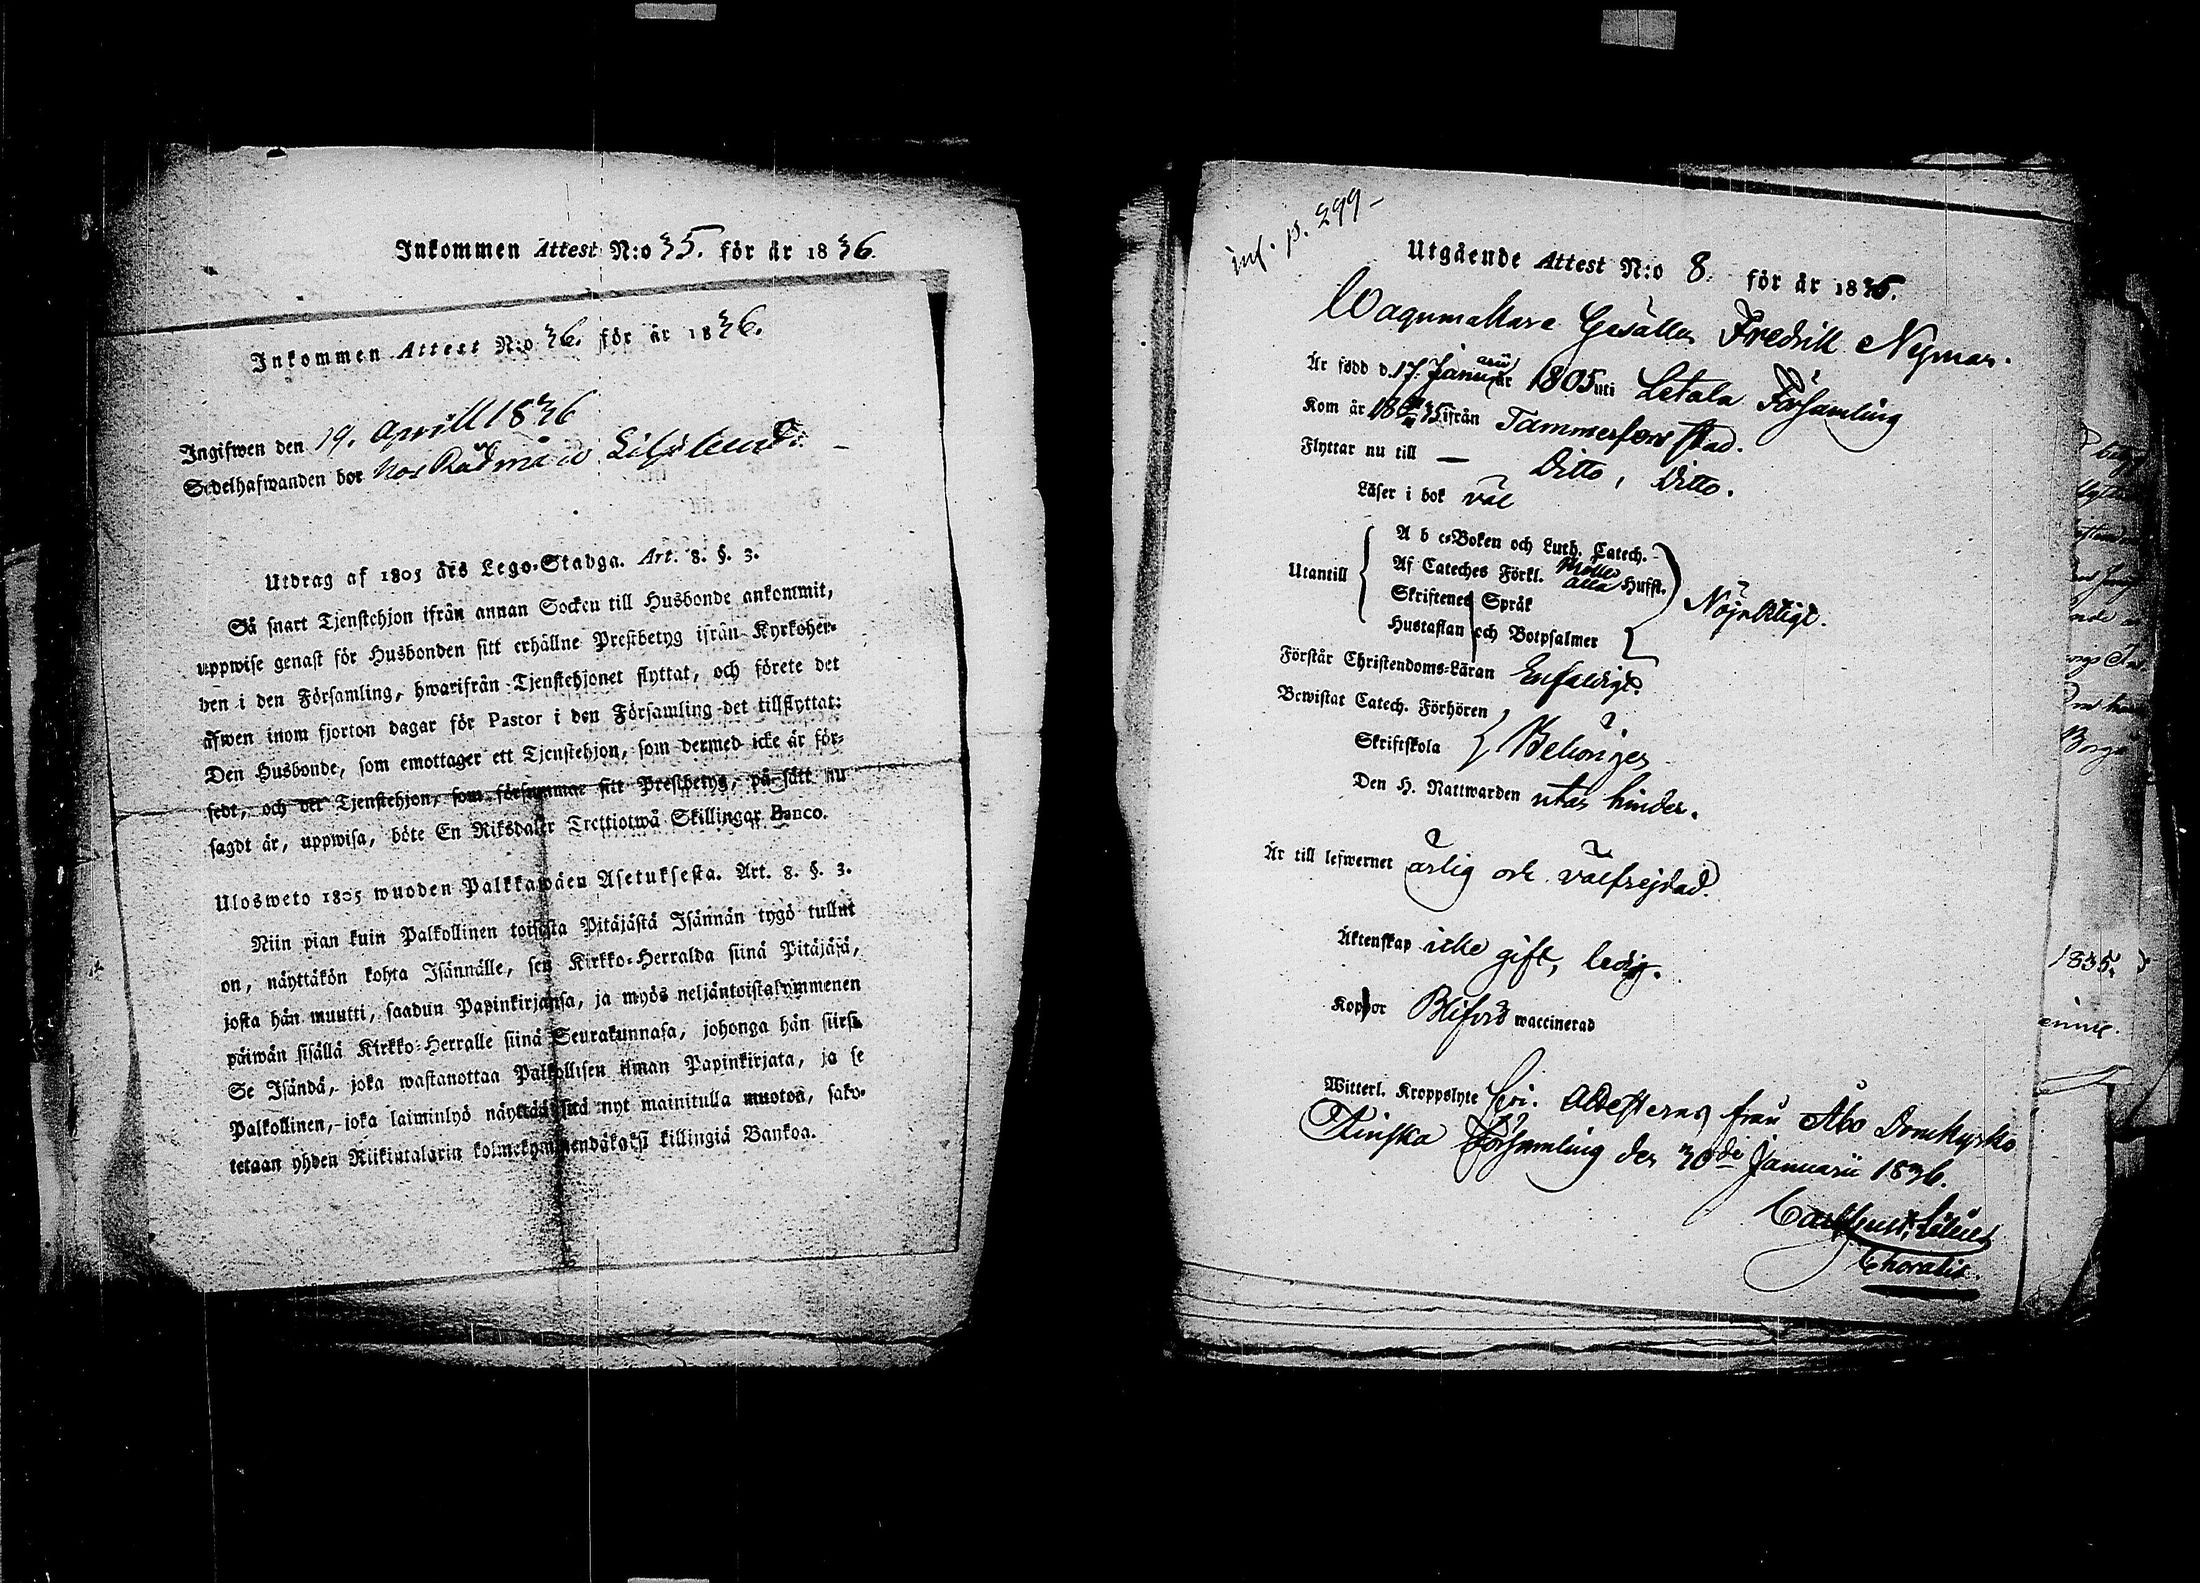 Inkommen Attest N:o 35. för år 1836.
Inkommen Attest N:o 36. för år 1836.
Ingifwen den 19. Aprill 1836
Sedelhafwanden bor hos Rådman
Utdrag af 1805 års Lego-Stadga. Art. 8. §. 3.
Så snart Tjenstehjon ifrån annan Socken till Husbonde ankommit,
uppwise genast för Husbonden sitt erhållne Prestbetyg ifrån Kyrkoher-
den i den Församling, hwarifrån Tjenstehjonet flyttat, och förete det
äfwen inom fjorton dagar för Pastor i den Församling det tillflyttat:
Den Husbonde, som emottager ett Tjenstehjon, som dermed icke är för-
sedt, och det Tjenstehjon, som försummar sitt Prestbetyg, på sätt nu
sagdt är, uppwisa, böte En Riksdaler Trettiotwå Skillingar Banco.
Ulosweto 1805 wuoden Palkkawäen Asetuksesta. Art. 8. §. 3.
Niin pian kuin Palkollinen toisesta Pitäjästä Isännän tygö tullut
on, näyttäkön kohta Isännälle, sen Kirkko-Herralda siinä Pitäjäsä,
josta hän muutti, saadun Papinkirjansa, ja myös neljäntoistakymmenen
päiwän sisällä Kirkko-Herralle siinä Seurakunnasa, johonga hän siirsi.
Se Isändä, joka wastanottaa Palkollisen ilman Papinkirjata, ja se
Palkollinen, joka laiminlyö näyttää sitä nyt mainitulla muoton, sako-
tetaan yhden Riikintalarin kolmekymmendäkaksi killingiä Bankoa.
inf. p. 299-
Utgående Attest N:o 8. för år 1836.
Wagnmakare Gesällen Fredrik Nyman.
Är född d. 17. Januarii år 1805 uti Letala Församling
Kom år 1835 ifrån Tammerfors stad.
Flyttar nu till — Ditto, Ditto.
Läser i bok väl
Utantill
A b c-Boken och Luth. Catech.
Af Cateches Förkl. alla Hufst.
Skriftenes Språk
Hustaflan och Botpsalmer
Nöjaktigt.
Förstår Christendoms-Läran Enfaldigt.
Bewistat Catech. Förhören
Skriftskola
Behörigen
Den H. Nattwarden utan hinder.
Är till lefwernet ärlig och välfrejdad.
Äktenskap icke gift, ledig.
Koppor Blifvit waccinerad
Witterl. Kroppslyte fri. Attesteras från Åbo Domkyrko
Finska Församling den 30de Januarii 1836.
1835.